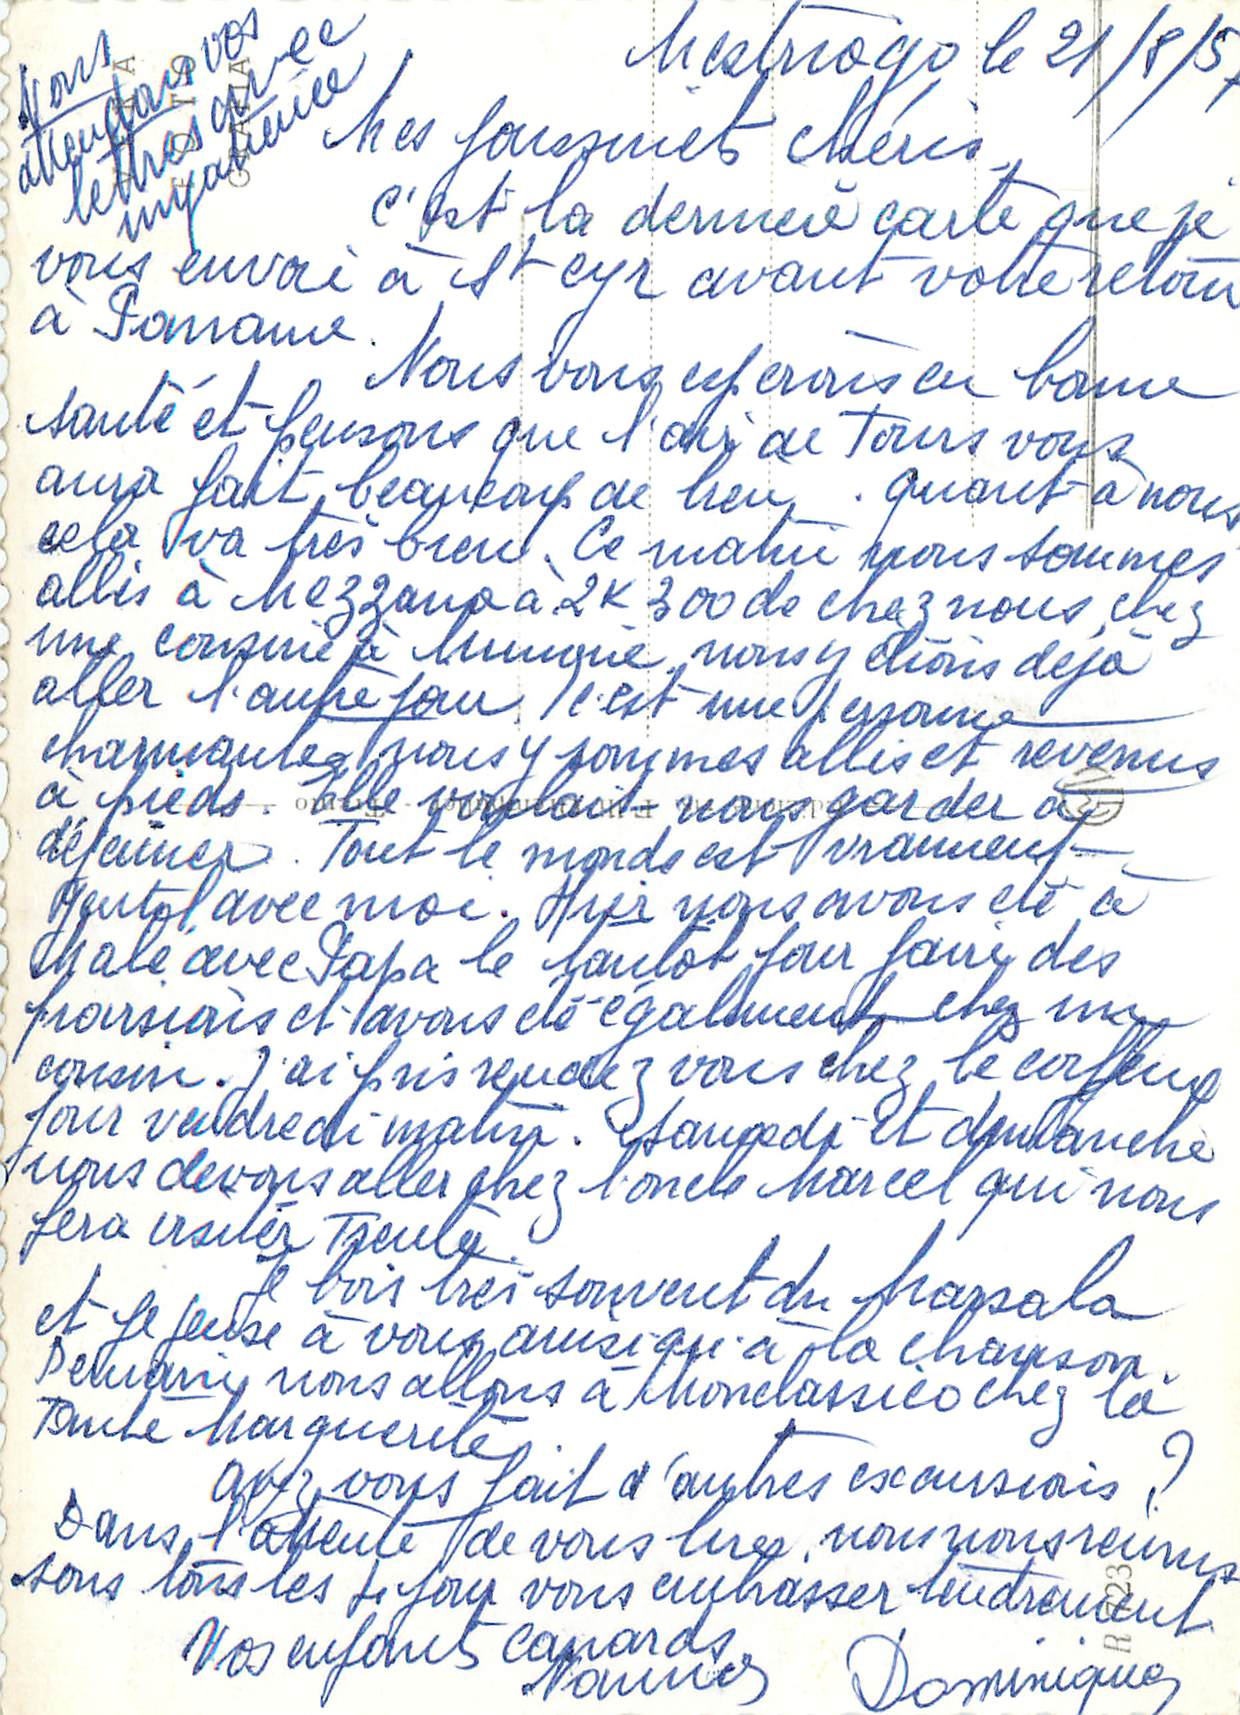 Mestriago le 21/8/57
Nous
attendons vos
lettres avec
impatience
Mes poussinets chéris,
C'est la dernière carte que je
vous envoi à St Cyr avant votre retour
à Paname.
Nous vous espérons en bonne
santé et pensons que l'air de Tours vous
aura fait beaucoup de bien. Quant à nous
cela va très bien. Ce matin nous sommes
allés à Mezzana à 2K 300 de chez nous, chez
une cousine à Mumone, nous y étions déjà
aller l'autre jour, c'est une personne
charmante, nous y sommes allés et revenus
à pieds. Elle voulait nous garder à
déjeuner. Tout le monde est vraiment
gentil avec moi. Hier nous avons été à
Malé avec Papa le tantôt pour faire des
provisions et avons été également chez un
cousin. J'ai pris rendez vous chez le coiffeur
pour vendredi matin. Samedi et dimanche
nous devons aller chez l'oncle Marcel qui nous
fera visiter Trente.
Je bois très souvent du Marsala
et je pense à vous ainsi qu'à la chanson.
Demain, nous allons à Monclassico chez la
Tante Marguerite.
Avez vous fait d'autres excursions ?
Dans l'attente de vous lire, nous nous réunis
sons tous les 4 pour vous embrasser tendrement
Vos enfants canards
Nannie Dominique
R 723